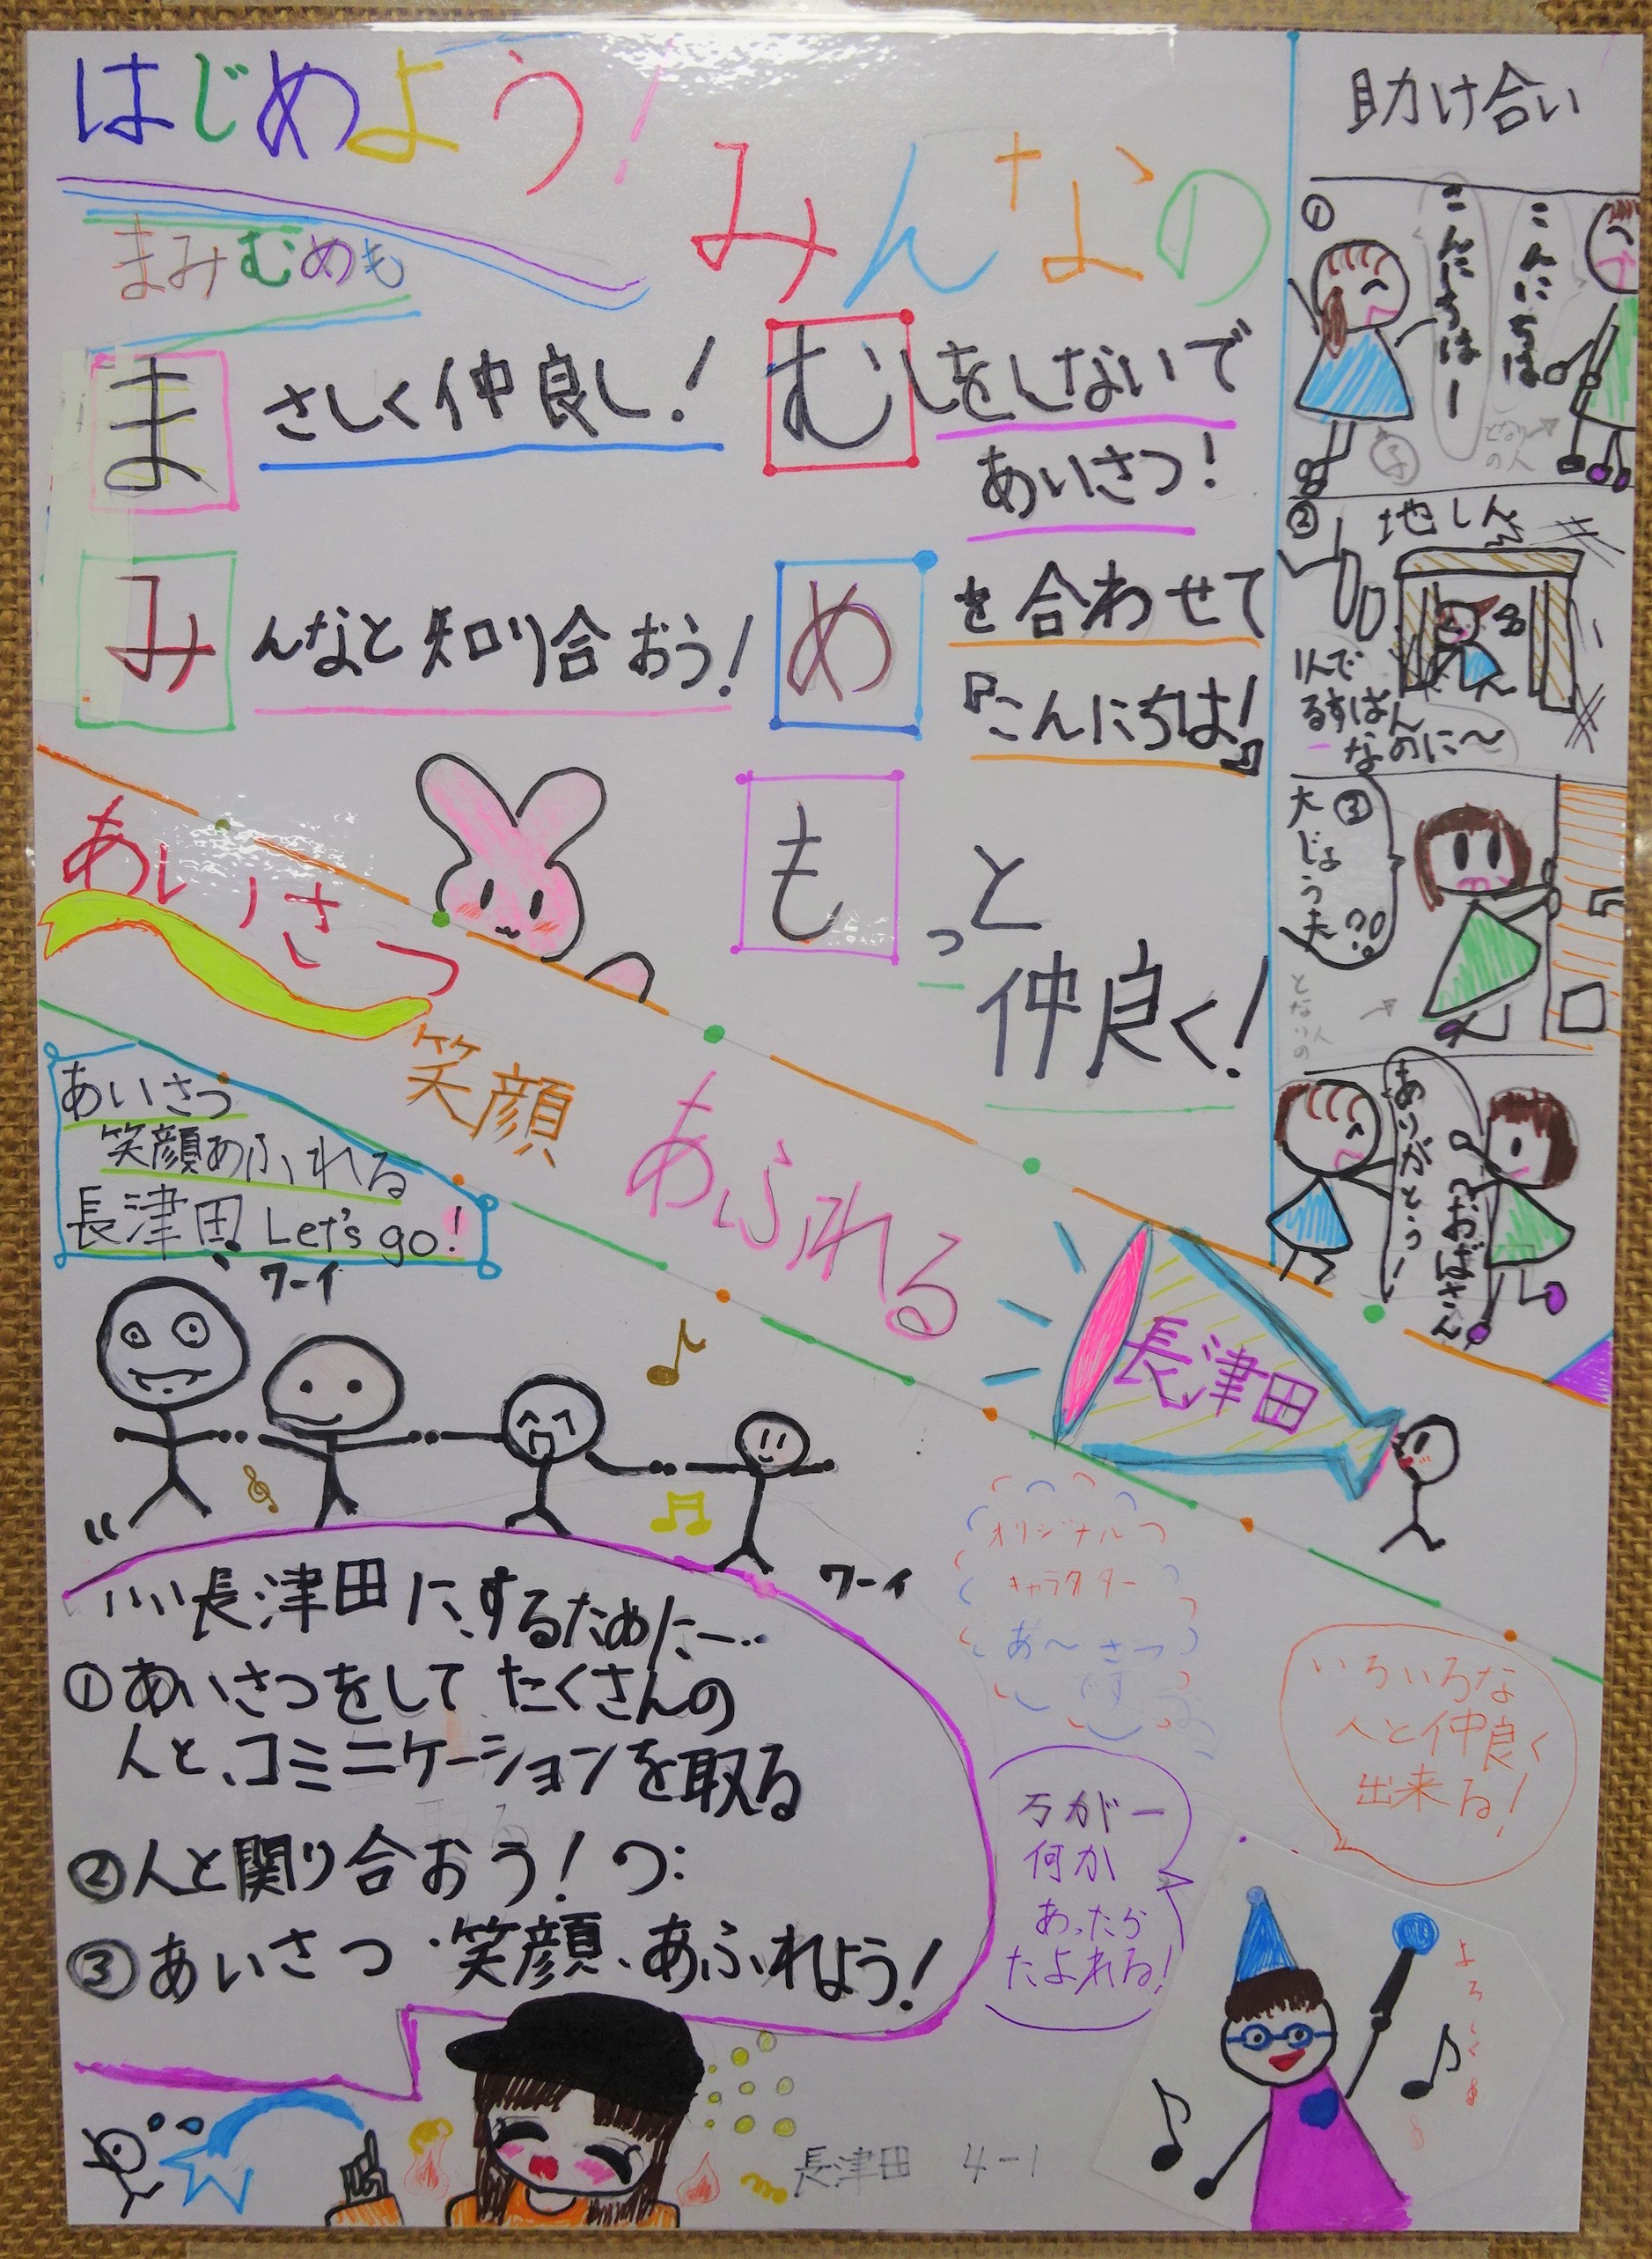 はじめよう!
みんなの
まみむめも
まさしく仲良し!
みんなと知り合おう!
むしをしないで
あいさつ!
めを合わせて
『こんにちは!』
もっと
仲良く!
助け合い
①
こんにちは
こんにちはー
となりの人
②
地しん
1人で
るすばん
なのに～
③
大じょう夫!?
となりの人
ありがとう!
おばさん
あいさつ
笑顔
あふれる
長津田
あいさつ
笑顔あふれる
長津田 Let's go!
ワーイ
ワーイ
いい長津田にするために…
①あいさつをして たくさんの
人と、コミニケーションを取る
②人と関り合おう!つ:
③あいさつ・笑顔、あふれよう!
オリジナル
キャラクター
あ～さつ
いろいろな
人と仲良く
出来る!
万が一
何か
あったら
たよれる!
よろしくね
長津田 4-1